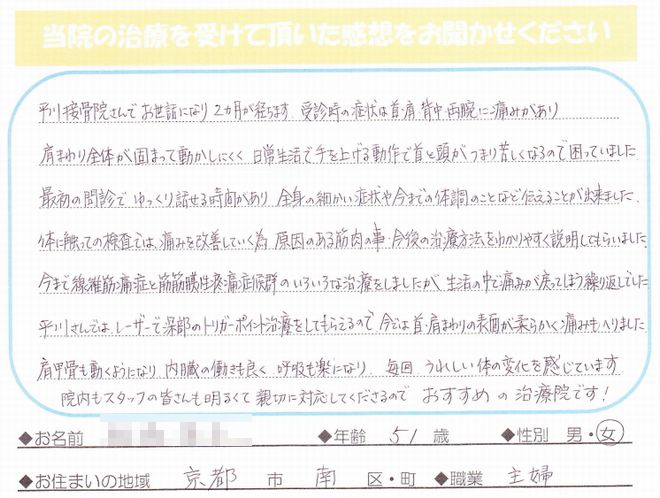 当院の治療を受けて頂いた感想をお聞かせください
平川接骨院さんでお世話になり2カ月が経ちます。受診時の症状は首・肩・背中・両腕に痛みがあり
肩まわり全体が固まって動かしにくく 日常生活で手を上げる動作で首と頭がつまり苦しくなるので困っていました
最初の問診でゆっくり話せる時間があり 全身の細かい症状や今までの体調のことなど伝えることが出来ました。
体に触っての検査では、痛みを改善していく為 原因のある筋肉の事・今後の治療方法をわかりやすく説明してもらいました。
今まで線維筋痛症と筋筋膜性疼痛症候群のいろいろな治療をしましたが、生活の中で痛みが戻ってしまう繰り返しでした
平川さんでは、レーザーで深部のトリガーポイント治療をしてもらえるので 今では首・肩まわりの表面が柔らかく痛みもへりました。
肩甲骨も動くようになり 内臓の働きも良く 呼吸も楽になり、毎回 うれしい体の変化を感じています
院内もスタッフの皆さんも明るくて 親切に対応してくださるので おすすめの治療院です!
◆お名前 ◆年齢 51 歳 ◆性別 男・女
◆お住まいの地域 京都 市 南 区・町 ◆職業 主婦